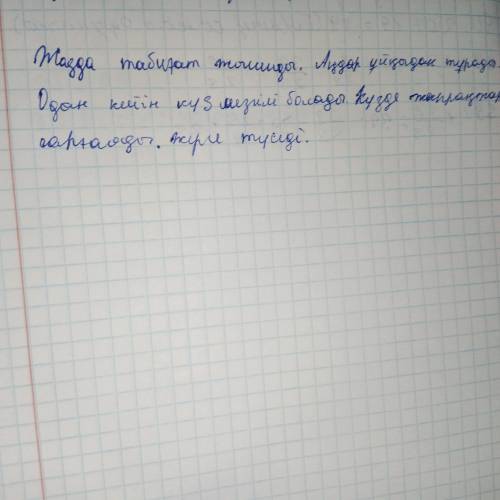 Жазда табиғат жылынды. Аңдар ұйқыдан тұрады.
Одан кейін күз мезгілі болады. Күзде жапырақтар
сарғаяды. жерге түседі.